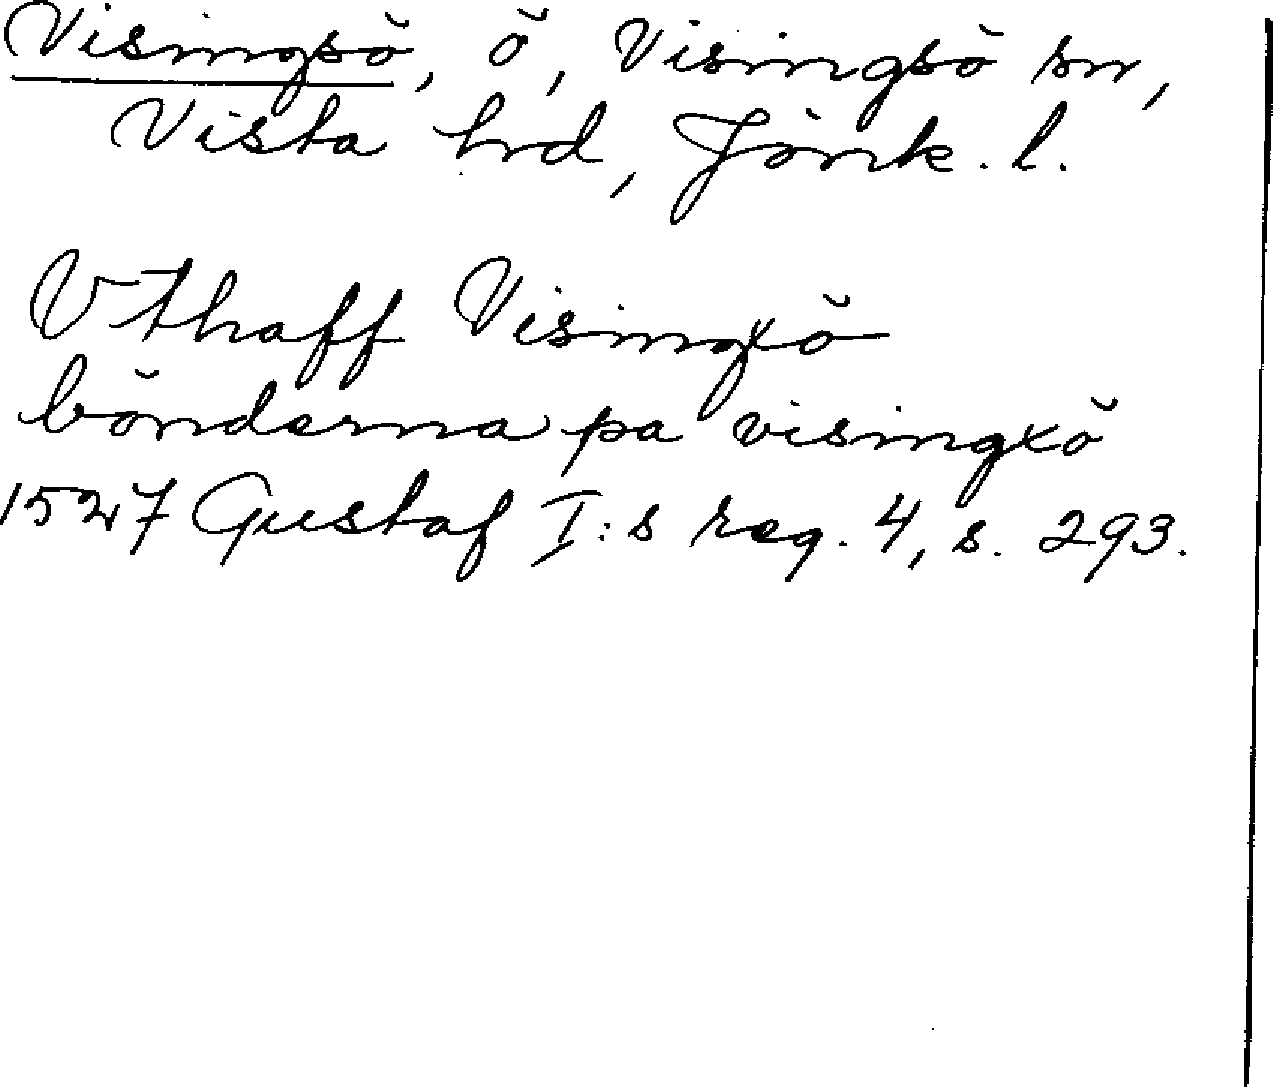 Visingsö, ö, Visingsö sn,
Vista hrd, Jönk. l.
Vthaff Visingxö
bönderna pa visingxö
1527 Gustaf I:s reg. 4, s. 293.